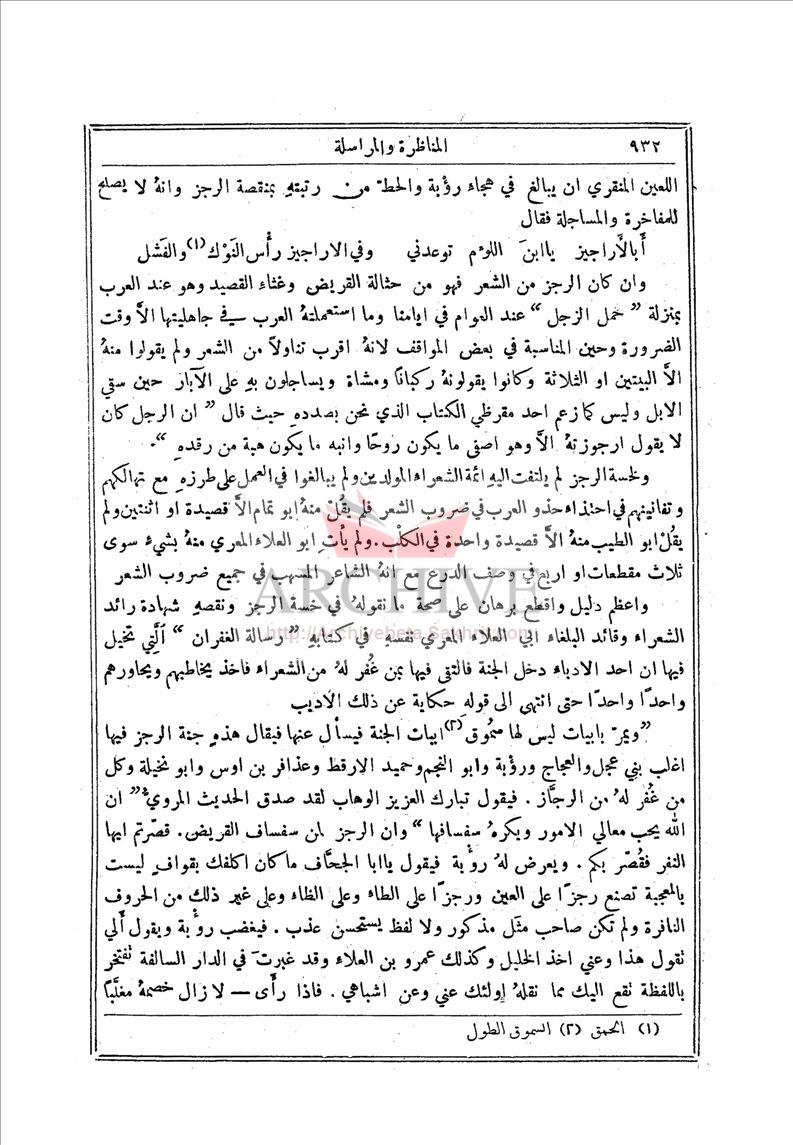 ٩٣٢ المناظرة والمراسلة
اللعين المنقري ان يبالغ في هجاء رؤبة والحط من رتبتهِ بمنقصة الرجز وانهُ لا يصلح
للمفاخرة والمساجلة فقال
أَبالأَراجيز ياابنَ اللوُم توعدني وفي الاراجيز رأْس النَوْك (١) والفشل
وان كان الرجز من الشعر فهو من حثالة القريض وغثاء القصيد وهو عند العرب
بمنزلة ” حمل الزجل “ عند العوام في ايامنا وما استعملتهُ العرب في جاهليتها الاَّ وقت
الضرورة وحين المناسبة في بعض المواقف لانهُ اقرب تناولاً من الشعر ولم يقولوا منهُ
الاَّ البيتين او الثلاثة وكانوا يقولونهُ ركباناً ومشاة ويساجلون بهِ على الآبار حين سقي
الابل وليس كما زعم احد مقرظي الكتاب الذي نحن بصددهِ حيث قال ” ان الرجل كان
لا يقول ارجوزتهُ الاَّ وهو اصفى ما يكون روحًا وانبه ما يكون هبة من رقدهِ “.
ولخسة الرجز لم يلتفت اليهِ ائمة الشعراء المولدين ولم يبالغوا في العمل على طرزهِ مع تهالكهم
وتفانيهم في احتذاء حذو العرب في ضروب الشعر فلم يقُلْ منهُ ابو تمام الاَّ قصيدة او اثنتين ولم
يقُلْ ابو الطيب منهُ الاَّ قصيدة واحدة في الكلْب. ولم يأتِ ابو العلاء المعري منهُ بشيءٍ سوى
ثلاث مقطعات او اربع في وصف الدرع مع انهُ الشاعر المسهب في جميع ضروب الشعر
واعظم دليل واقطع برهان على صحة ما نقولهُ في خسة الرجز ونقصهِ شهادة رائد
الشعراء وقائد البلغاء ابي العلاء المعري نفسهِ في كتابهِ ” رسالة الغفران “ اَلَّتي تخيل
فيها ان احد الادباء دخل الجنة فالتقى فيها بمن غُفر لهُ من الشعراء فاخذ يخاطبهم ويحاورهم
واحدًا واحدًا حتى انتهى الى قولهِ حكاية عن ذلك الاديب
” ويمرّ بابيات ليس لها سُموق (٢) ابيات الجنة فيسأل عنها فيقال هذهِ جنة الرجز فيها
اغلب بني عجل والعجاج ورؤبة وابو النجم وحميد الارقط وعذافر بن اوس وابو نخيلة وكل
من غُفر لهُ من الرجَّاز . فيقول تبارك العزيز الوهاب لقد صدق الحديث المروي ” ان
الله يحب معالي الامور ويكرهُ سفسافها “ وان الرجز لمن سفساف القريض. قصّرتم ايها
النفر فقُصّر بكم . ويعرض لهُ رؤبة فيقول ياابا الجحَّاف ما كان اكلفك بقوافٍ ليست
بالمعجبة تصنع رجزًا على الغين ورجزًا على الطاء وعلى الظاء وعلى غير ذلك من الحروف
النافرة ولم تكن صاحب مثل مذكور ولا لفظ يستحسن عذب . فيغضب رؤبة ويقول أَلي
تقول هذا وعني اخذ الخليل وكذلك عمرو بن العلاء وقد غبرتَ في الدار السالفة تفتخر
باللفظة تقع اليك مما نقلهُ اولئك عني وعن اشباهي . فاذا رأى — لا زال خصمهُ مغلَّبًا
(١) الحمق (٢) السموق الطول
ARCHIVE
http://Archivebeta.Sakhrit.com